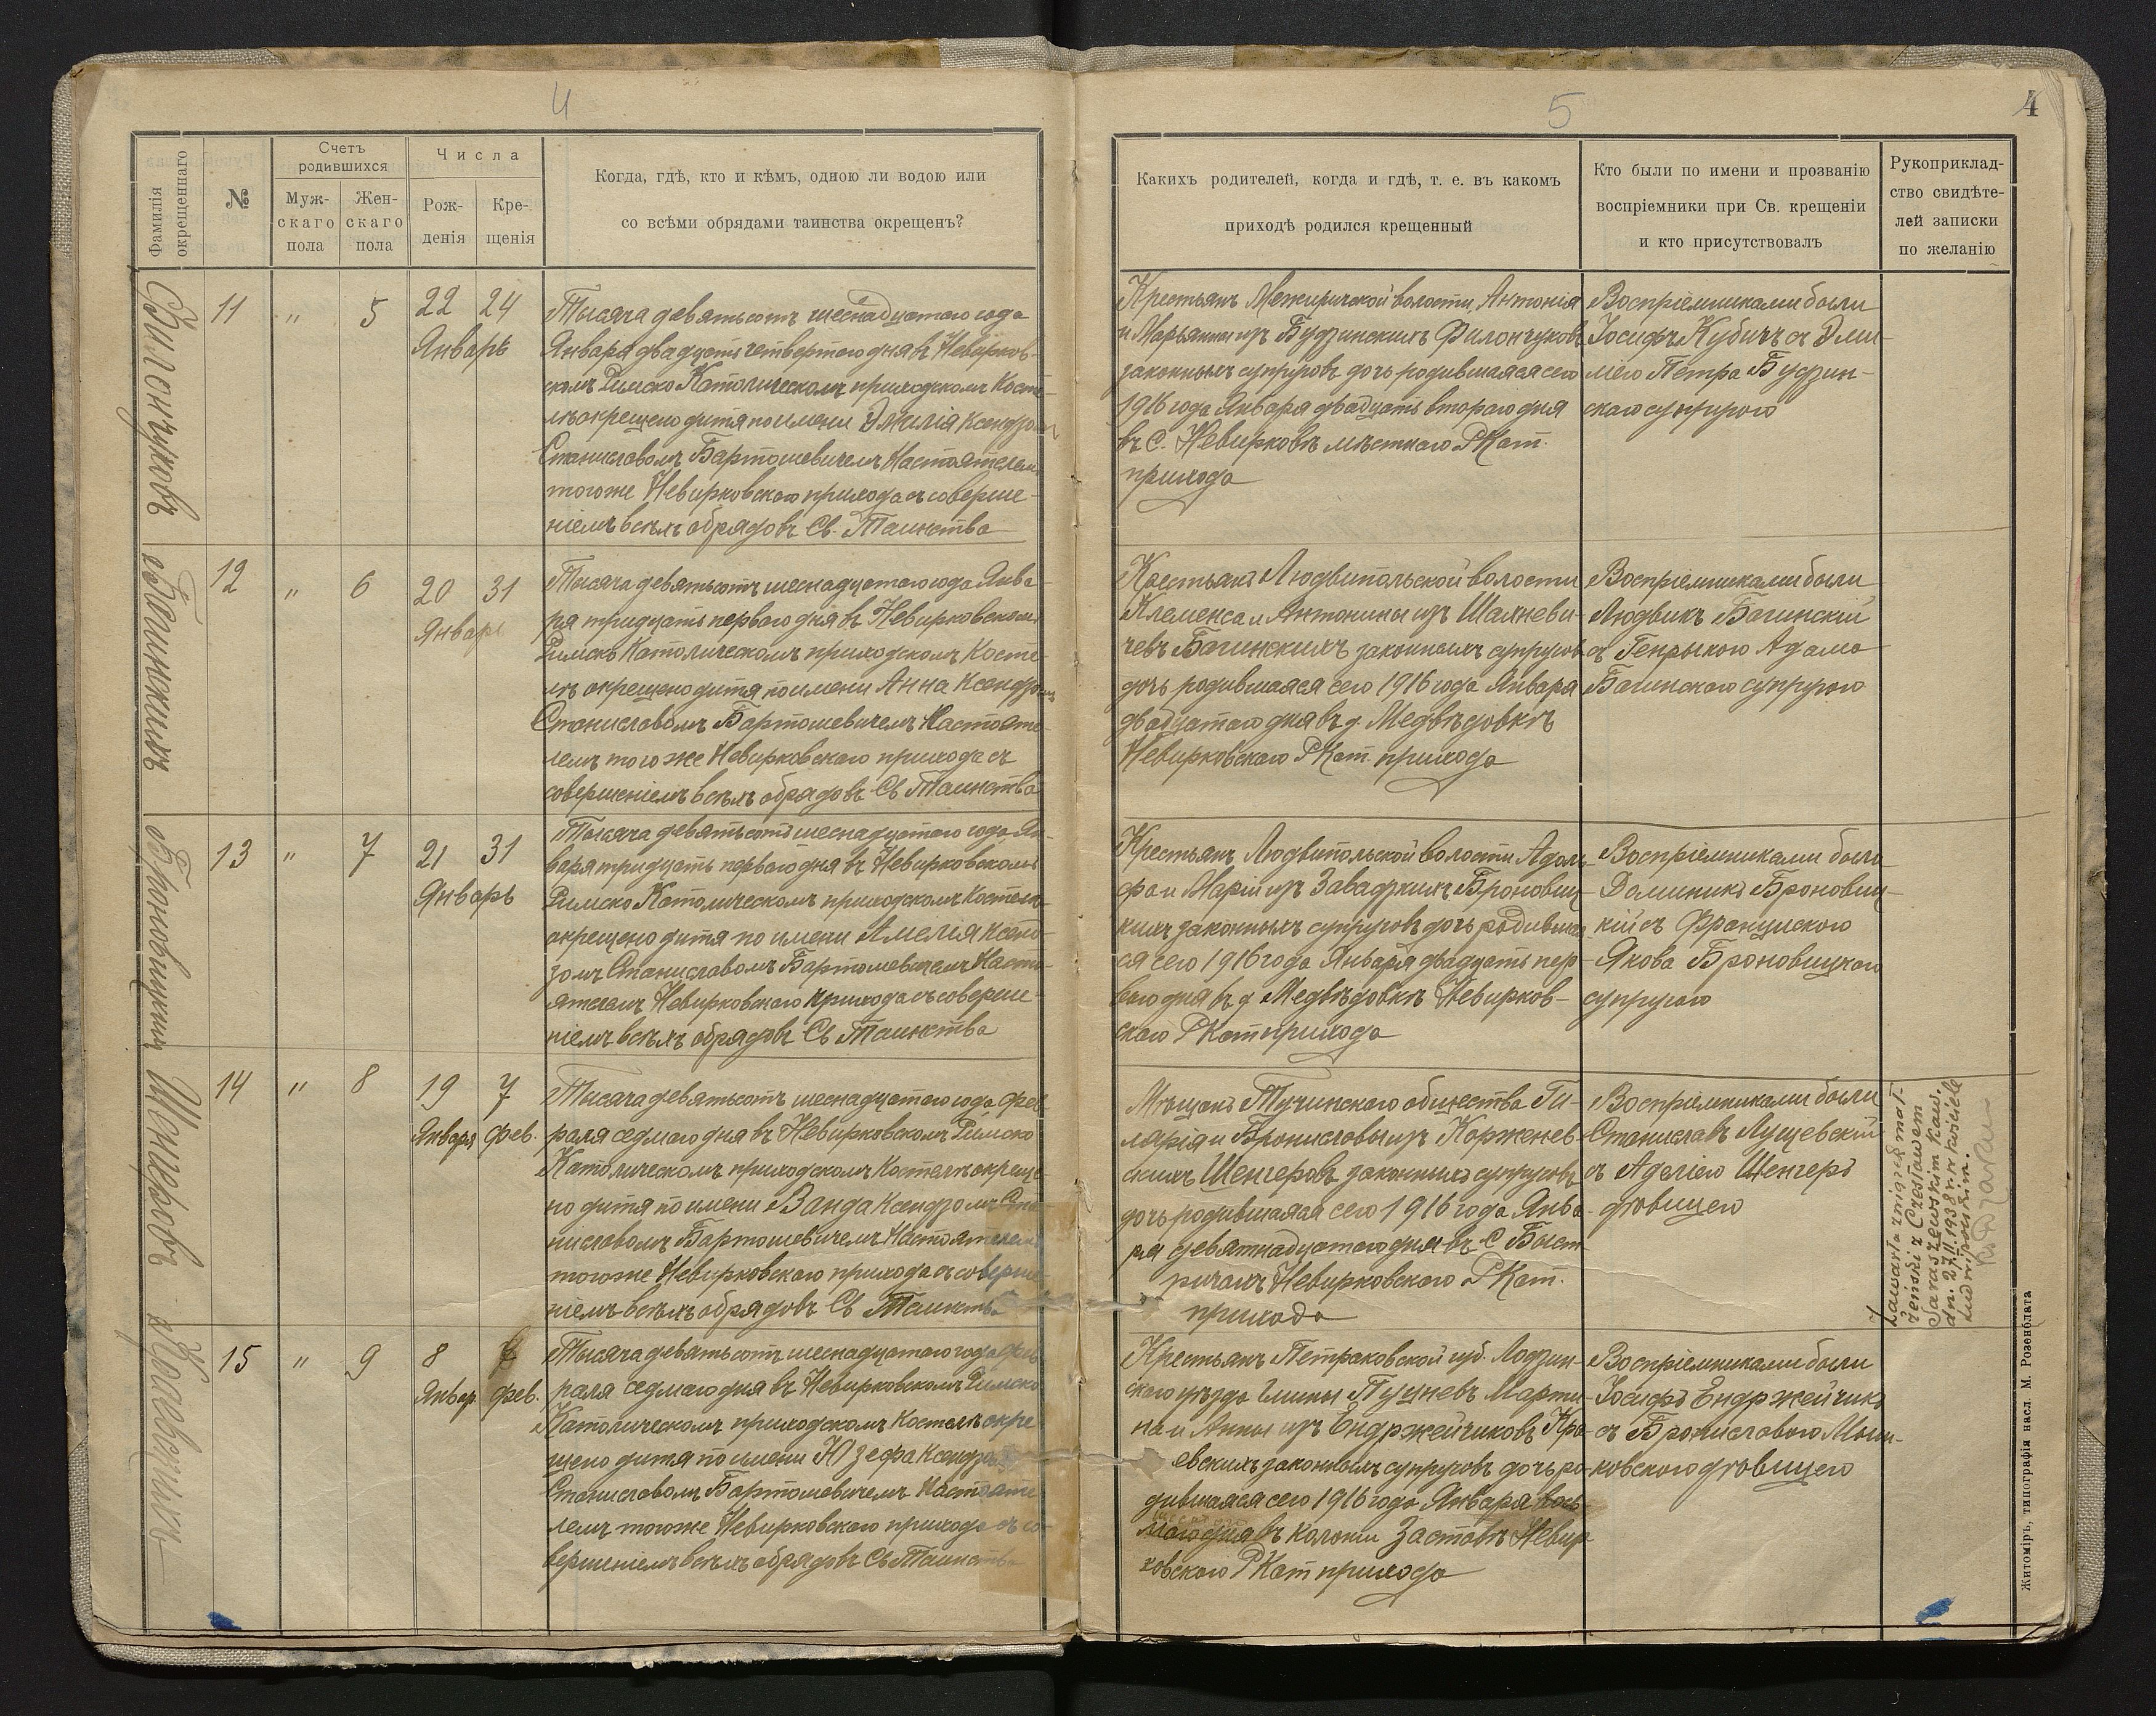 4
Фамилія окрещеннаго
№
Счетъ родившихся
Муж-
скаго
пола
Жен-
скаго
пола
Числа
Рож-
денія
Кре-
щенія
Когда, гдѣ, кто и кѣмъ, одною ли водою или
со всѣми обрядами таинства окрещенъ?
Филончуковъ
11 " 5 22 24
Январь
Тысяча девятьсотъ шеснадцатого года
Января двадцать четвертого дня въ Невирков-
скомъ Римско Католическомъ приходскомъ Косте-
лѣ окрещено дитя по имени Эмилія Ксендзомъ
Станиславомъ Бартошевичемъ Настоятелемъ
тогоже Невирковского прихода съ соверше-
ніемъ всѣхъ обрядовъ Св. Таинства
Багинскихъ
12 " 6 20 31
Январь
Тысяча девятьсотъ шеснадцатого года Янва-
ря тридцать первого дня въ Невирковскомъ
Римско Католическомъ приходскомъ Косте-
лѣ окрещено дитя по имени Анна Ксендзомъ
Станиславомъ Бартошевичемъ Настояте-
лемъ того же Невирковского прихода съ
совершеніемъ всѣхъ обрядовъ Св Таинства
Броновицкихъ
13 " 7 21 31
Январь
Тысяча девятьсотъ шеснадцатого года Ян-
варя тридцать первого дня въ Невирковскомъ
Римско Католическомъ приходскомъ Костелѣ
окрещено дитя по имени Амелія Ксенд-
зомъ Станиславомъ Бартошевичемъ Насто-
ятелемъ Невирковского прихода съ соверше-
ніемъ всѣхъ обрядовъ Св Таинства
Шенгеровъ
14 " 8 19 7
Января фев.
Тысяча девятьсотъ шеснадцатого года фев-
раля седмого дня въ Невирковскомъ Римско
Католическомъ приходскомъ Костелѣ окреще-
но дитя по имени Ванда Ксендзомъ Ста-
ниславомъ Бартошевичемъ Настоятелемъ
тогоже Невирковского прихода съ соверше-
ніемъ всѣхъ обрядовъ Св Таинства
Краевскихъ
15 " 9 8 7
Январ фев.
Тысяча девятьсотъ шеснадцатого года фев-
раля седмого дня въ Невирковскомъ Римско
Католическомъ приходскомъ Костелѣ окре-
щено дитя по имени Юзефа Ксендзомъ
Станиславомъ Бартошевичемъ Настояте-
лемъ тогоже Невирковского прихода съ со-
вершеніемъ всѣхъ обрядовъ Св Таинства
5
4
Какихъ родителей, когда и гдѣ, т. е. въ какомъ
приходѣ родился крещенный
Кто были по имени и прозванію
воспріемники при Св. крещеніи
и кто присутствовалъ
Рукоприклад-
ство свидѣте-
лей записки
по желанію
Крестьянъ Межиричской волости, Антонія
и Марьянны изъ Будзинскихъ Филончуковъ
законныхъ супруговъ дочь родившаяся сего
1916 года Января двадцать второго дня
въ С. Невирковѣ мѣстного Р Кат.
прихода
Воспріемниками были
Іосифъ Кубичъ съ Эми-
ліею Петра Будзин-
ского супругою
Крестьянъ Людвипольской волости
Клеменса и Антонины изъ Шахневи-
чевъ Багинскихъ законныхъ супруговъ
дочь родившаяся сего 1916 года Января
двадцатого дня въ д. Медвѣдовкѣ
Невирковского Р Кат. прихода
Воспріемниками были
Людвикъ Багинскій
съ Генрыкою Адама
Багинского супругою
Крестьянъ Людвипольской волости Адоль-
фа и Маріи изъ Завадзкихъ Броновиц-
кихъ законныхъ супруговъ дочь родившая-
ся сего 1916 года Января двадцать пер-
вого дня въ д Медвѣдовкѣ Невирков-
ского Р Кат прихода
Воспріемниками были
Доминикъ Броновиц-
кій съ Францишкою
Якова Броновицкого
супругою
Мѣщанъ Тучинского общества Ги-
лярія и Брониславы изъ Корженев-
скихъ Шенгеровъ законныхъ супруговъ
дочь родившаяся сего 1916 года Янва-
ря девятнадцатого дня въ С Быст-
ричахъ Невирковского Р Кат.
прихода
Воспріемниками были
Станиславъ Лущевскій
съ Аделіею Шенгеръ
дѣвицею
Zawarła związek mał-
żeński z Czesławem
Saraszewskim Kaw.
dn. 27.II.1938 r. w kościele
Ludwipolskim.
Крестьянъ Петраковской губ. Лодзин-
ского уѣзда Гмины Пущневъ Марти-
на и Анны изъ Ендржейчиковъ Кра-
евскихъ законныхъ супруговъ дочь ро-
дившаяся сего 1916 года Января вось-
мого дня въ колоніи Заставѣ Невир-
ковского Р Кат прихода
Воспріемниками были
Іосифъ Ендржейчикъ
съ Брониславою Мош-
ковского дѣвицею
Житоміръ, типографія насл. М. Розенблата